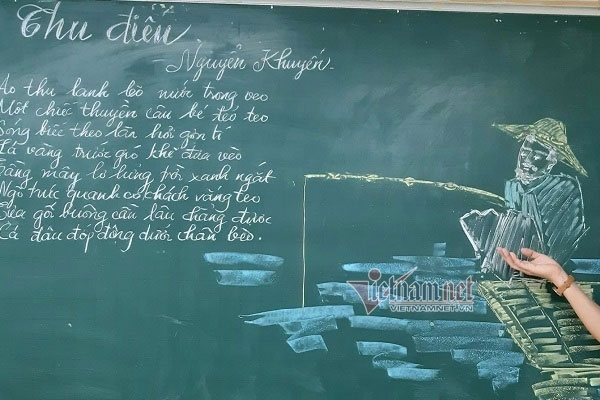 Thu điếu
Nguyễn Khuyến
Ao thu lạnh lẽo nước trong veo
Một chiếc thuyền câu bé tẻo teo
Sóng biếc theo làn hơi gợn tí
Lá vàng trước gió khẽ đưa vèo
Tầng mây lơ lửng trời xanh ngắt
Ngõ trúc quanh co khách vắng teo
Tựa gối buông cần lâu chẳng được
Cá đâu đớp động dưới chân bèo.
Vietnamnet
VIETNAMNET.VN